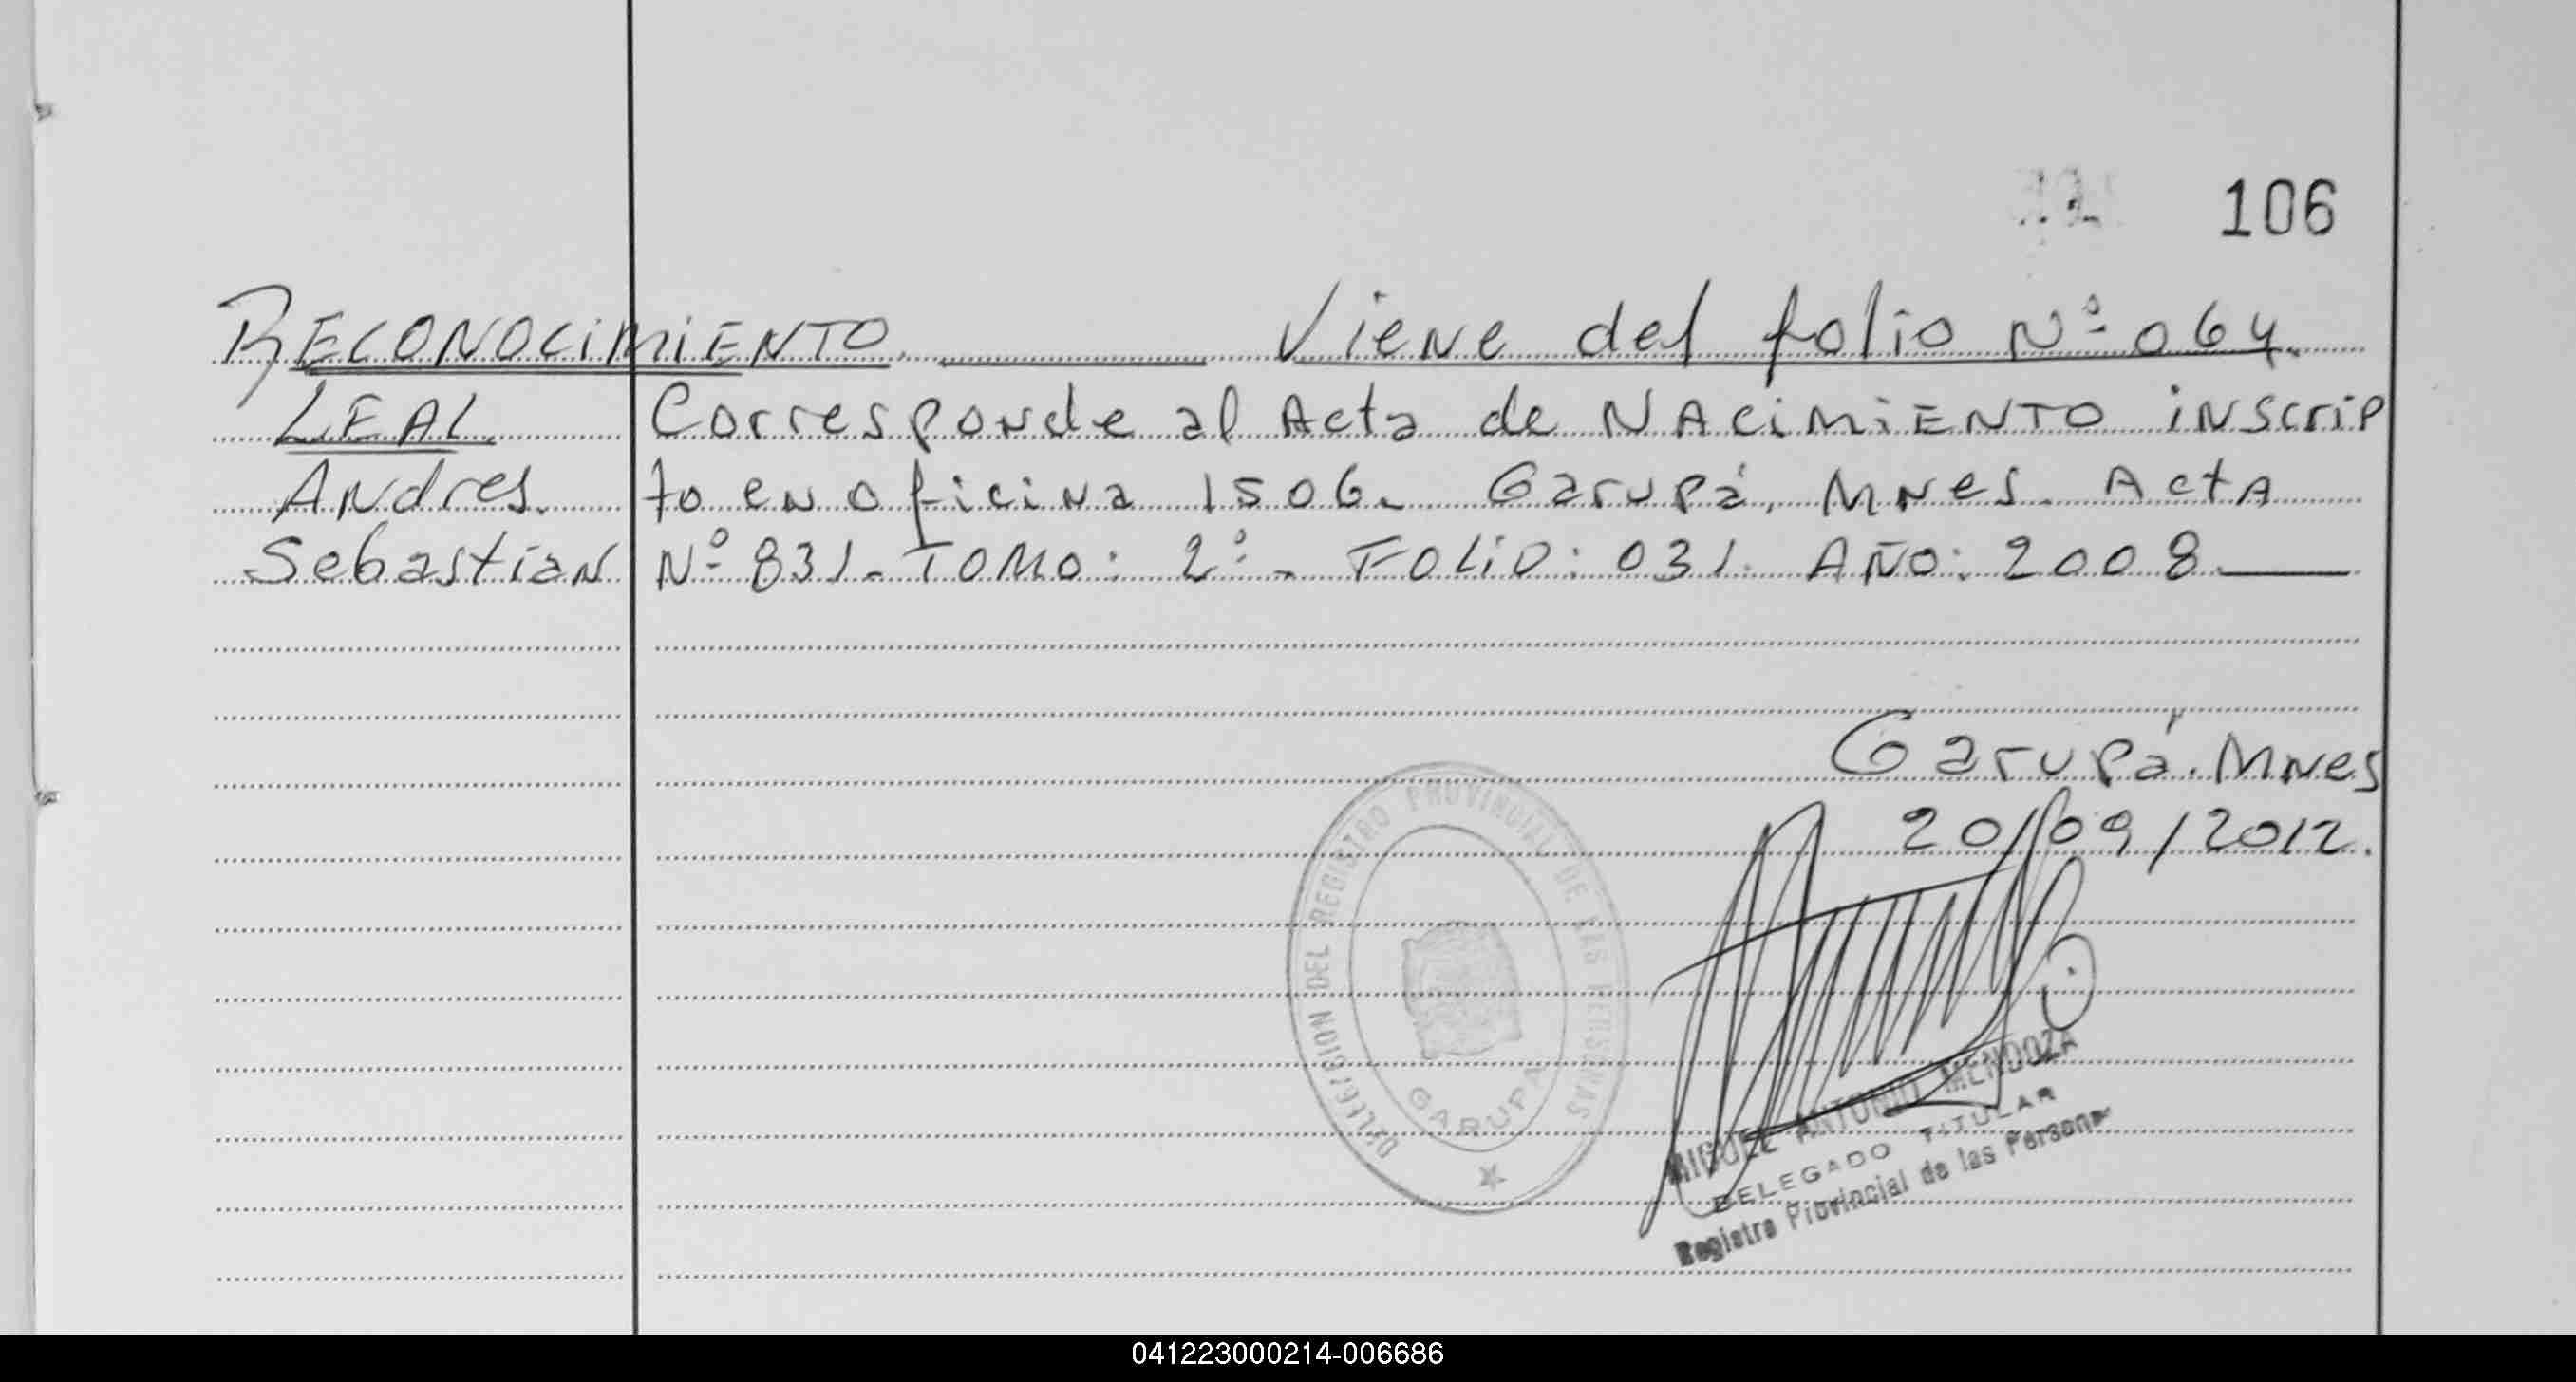 106
RECONOCIMIENTO. Viene del folio Nº 064.
LEAL Corresponde al Acta de NACIMIENTO INSCRIP
Andres. to en oficina 1506. Garupá, Mnes. Acta
Sebastian Nº 831. TOMO: 2º. FOLIO: 031. AÑO: 2008
Garupá. Mnes
20/09/2012.
DELEGACION DEL REGISTRO PROVINCIAL DE LAS PERSONAS
GARUPA
MIGUEL ANTONIO MENDOZA
DELEGADO TITULAR
Registro Provincial de las Personas
041223000214-006686